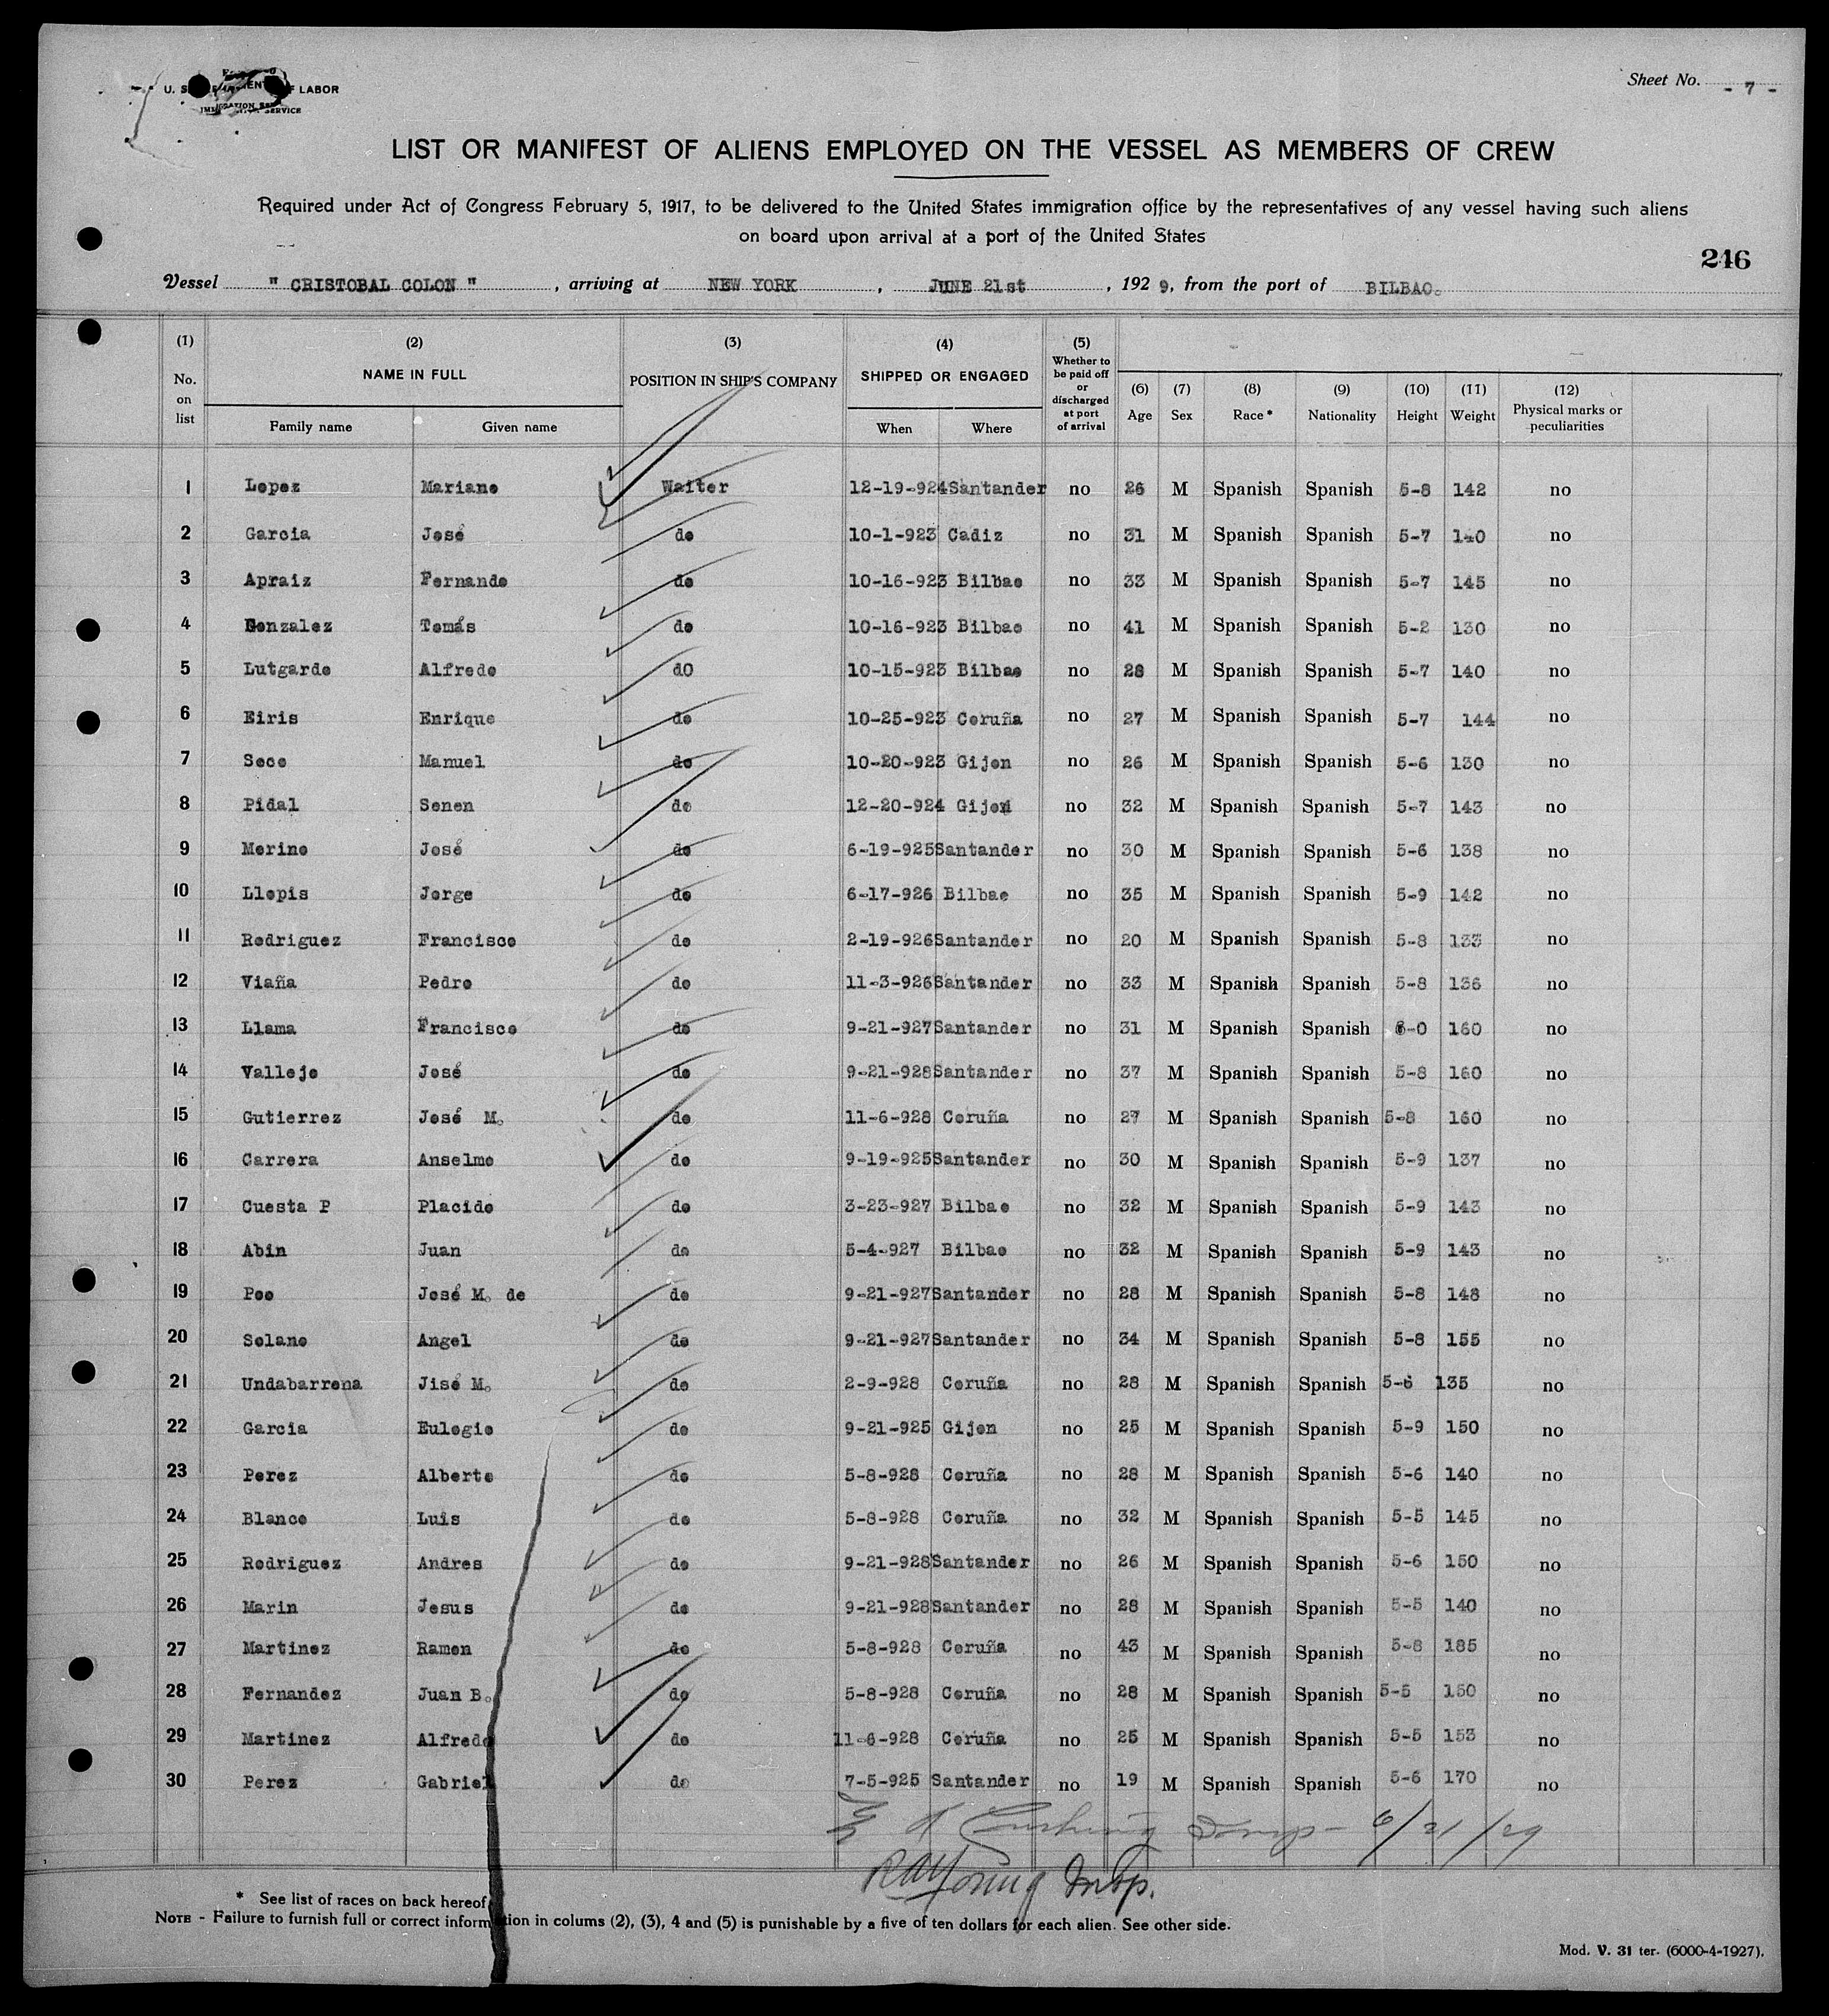 U. S. DEPARTMENT OF LABOR
IMMIGRATION SERVICE
Sheet No. - 7 -
LIST OR MANIFEST OF ALIENS EMPLOYED ON THE VESSEL AS MEMBERS OF CREW
Required under Act of Congress February 5, 1917, to be delivered to the United States immigration office by the representatives of any vessel having such aliens
on board upon arrival at a port of the United States
246
Vessel " CRISTOBAL COLON " , arriving at NEW YORK , JUNE 21st , 1929, from the port of BILBAO.
(1) No. on list (2) NAME IN FULL Family name Given name (3) POSITION IN SHIP'S COMPANY (4) SHIPPED OR ENGAGED When Where (5) Whether to be paid off or discharged at port of arrival (6) Age (7) Sex (8) Race * (9) Nationality (10) Height (11) Weight (12) Physical marks or peculiarities
1 Lopez Mariano Waiter 12-19-924 Santander no 26 M Spanish Spanish 5-8 142 no
2 Garcia José do 10-1-923 Cadiz no 31 M Spanish Spanish 5-7 140 no
3 Apraiz Fernando do 10-16-923 Bilbao no 33 M Spanish Spanish 5-7 145 no
4 Gonzalez Tomás do 10-16-923 Bilbao no 41 M Spanish Spanish 5-2 130 no
5 Lutgardo Alfredo dO 10-15-923 Bilbao no 28 M Spanish Spanish 5-7 140 no
6 Eiris Enrique do 10-25-923 Coruña no 27 M Spanish Spanish 5-7 144 no
7 Soco Manuel do 10-20-923 Gijon no 26 M Spanish Spanish 5-6 130 no
8 Pidal Senen do 12-20-924 Gijon no 32 M Spanish Spanish 5-7 143 no
9 Merino José do 6-19-925 Santander no 30 M Spanish Spanish 5-6 138 no
10 Llopis Jorge do 6-17-926 Bilbao no 35 M Spanish Spanish 5-9 142 no
11 Rodriguez Francisco do 2-19-926 Santander no 20 M Spanish Spanish 5-8 133 no
12 Viaña Pedro do 11-3-926 Santander no 33 M Spanish Spanish 5-8 136 no
13 Llama Francisco do 9-21-927 Santander no 31 M Spanish Spanish 6-0 160 no
14 Vallejo José do 9-21-928 Santander no 37 M Spanish Spanish 5-8 160 no
15 Gutierrez José M. do 11-6-928 Coruña no 27 M Spanish Spanish 5-8 160 no
16 Carrera Anselmo do 9-19-925 Santander no 30 M Spanish Spanish 5-9 137 no
17 Cuesta P Placido do 3-23-927 Bilbao no 32 M Spanish Spanish 5-9 143 no
18 Abin Juan do 5-4-927 Bilbao no 32 M Spanish Spanish 5-9 143 no
19 Poo José M. de do 9-21-927 Santander no 28 M Spanish Spanish 5-8 148 no
20 Solano Angel do 9-21-927 Santander no 34 M Spanish Spanish 5-8 155 no
21 Undabarrena Jisé M. do 2-9-928 Coruña no 28 M Spanish Spanish 5-6 135 no
22 Garcia Eulogio do 9-21-925 Gijon no 25 M Spanish Spanish 5-9 150 no
23 Perez Alberto do 5-8-928 Coruña no 28 M Spanish Spanish 5-6 140 no
24 Blanco Luis do 5-8-928 Coruña no 32 M Spanish Spanish 5-5 145 no
25 Rodriguez Andres do 9-21-928 Santander no 26 M Spanish Spanish 5-6 150 no
26 Marin Jesus do 9-21-928 Santander no 28 M Spanish Spanish 5-5 140 no
27 Martinez Ramon do 5-8-928 Coruña no 43 M Spanish Spanish 5-8 185 no
28 Fernandez Juan B. do 5-8-928 Coruña no 28 M Spanish Spanish 5-5 150 no
29 Martinez Alfredo do 11-6-928 Coruña no 25 M Spanish Spanish 5-5 153 no
30 Perez Gabriel do 7-5-925 Santander no 19 M Spanish Spanish 5-6 170 no
Cushing Insp - 6/21/29
R A Young Insp.
* See list of races on back hereof
NOTE - Failure to furnish full or correct information in colums (2), (3), 4 and (5) is punishable by a five of ten dollars for each alien. See other side.
Mod. V. 31 ter. (6000-4-1927).